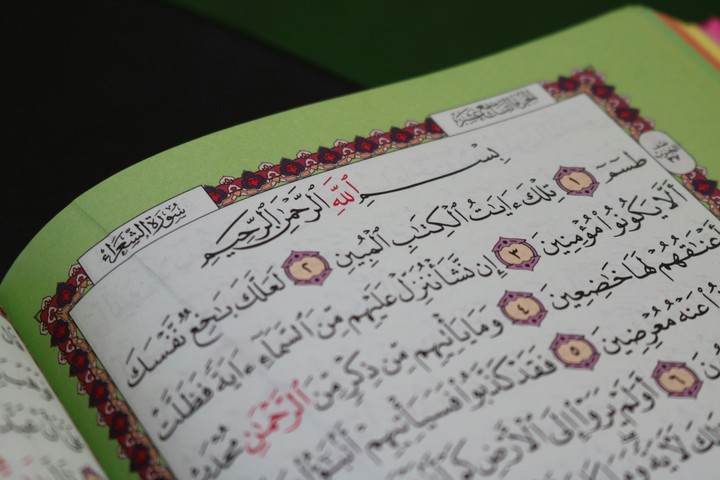 الجزء التاسع عشر
سُورَةُ الشُّعَرَاءِ
بِسْمِ ٱللَّهِ ٱلرَّحْمَٰنِ ٱلرَّحِيمِ
طسٓمٓ ١ تِلْكَ ءَايَٰتُ ٱلْكِتَٰبِ ٱلْمُبِينِ ٢ لَعَلَّكَ بَٰخِعٌ نَّفْسَكَ
أَلَّا يَكُونُوا۟ مُؤْمِنِينَ ٣ إِن نَّشَأْ نُنَزِّلْ عَلَيْهِم مِّنَ ٱلسَّمَآءِ ءَايَةً فَظَلَّتْ
أَعْنَٰقُهُمْ لَهَا خَٰضِعِينَ ٤ وَمَا يَأْتِيهِم مِّن ذِكْرٍ مِّنَ ٱلرَّحْمَٰنِ مُحْدَثٍ
عَنْهُ مُعْرِضِينَ ٥ فَقَدْ كَذَّبُوا۟ فَسَيَأْتِيهِمْ أَنۢبَٰٓؤُا۟
٦ أَوَلَمْ يَرَوْا۟ إِلَى ٱلْأَرْضِ كَمْ
لَءَايَةً وَمَا